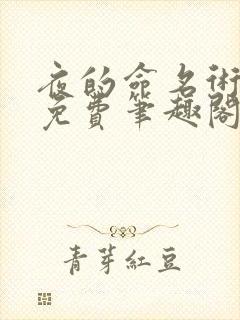 夜的命名術
免費筆趣閣
青芽紅豆